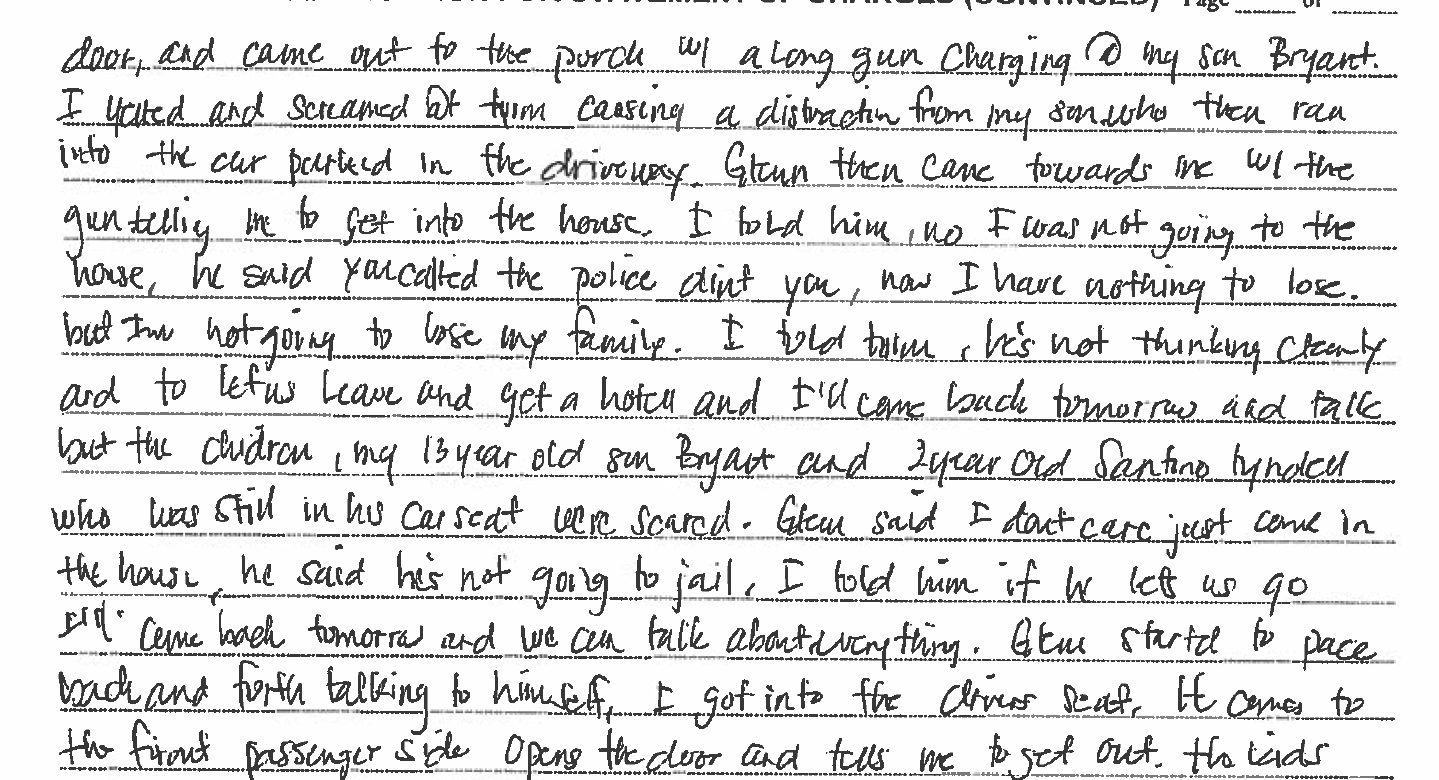 STATEMENT OF CHARGES (CONTINUED) Page ...... of ......
door, and came out to the porch w/ a long gun Charging @ my son Bryant.
I yelled and screamed at him causing a distraction from my son who then ran
into the car parked in the driveway. Glenn then came towards me w/ the
gun tellig me to get into the house. I told him, no I was not going to the
house, he said you called the police dint you, now I have nothing to lose.
but Im not going to lose my family. I told him, he's not thinking clearly
and to let us leave and get a hotel and I'll come back tomorrow and talk
but the children, my 13 year old son Bryant and 2 year old Santino Lyndell
who was still in his car seat were scared. Glenn said I dont care just come in
the house, he said he's not going to jail, I told him if he lets us go
I'll come back tomorrow and we can talk about everything. Glenn startd to pace
back and forth talking to himself, I got into the drivers seat, He comes to
the front passenger side opens the door and tells me to get out. The kids